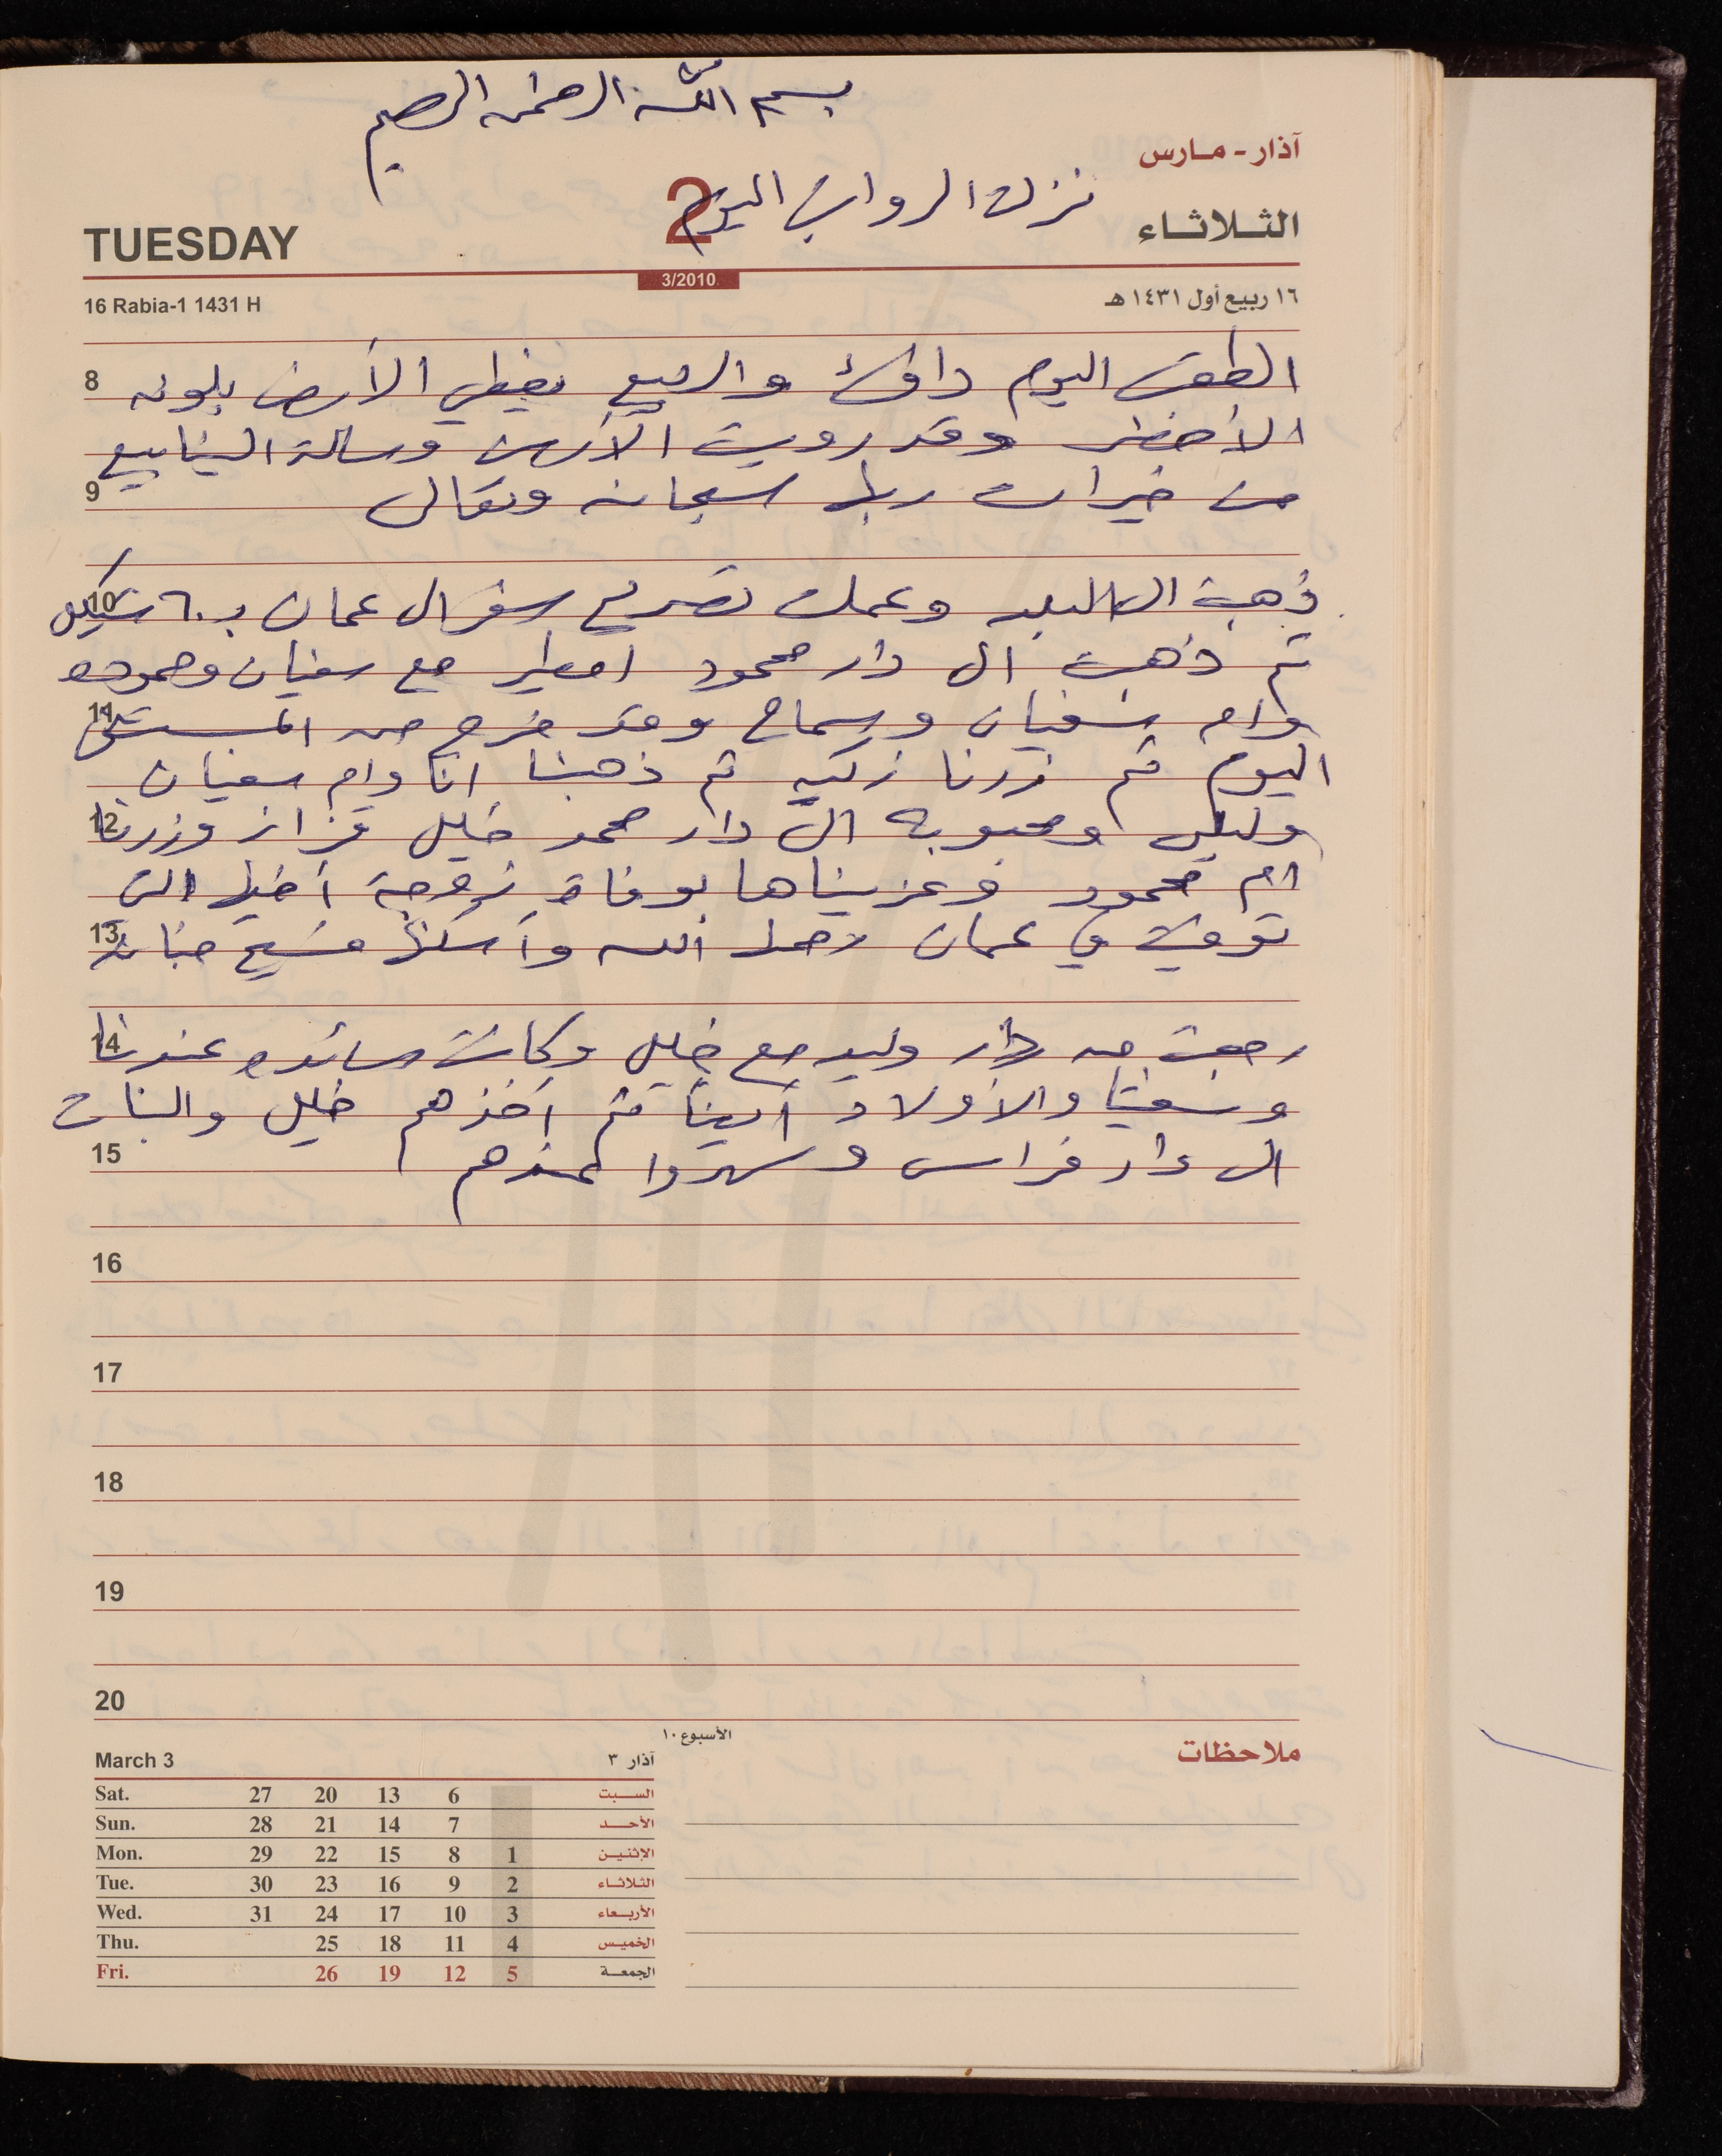 بسم الله الرحمن الرحيم
آذار - مارس
نزلت الرواتب اليوم
2
TUESDAY
الثلاثاء
3/2010
16 Rabia-1 1431 H
١٦ ربيع أول ١٤٣١ هـ
8 الطقس اليوم دافئ والربيع يغطي الأرض بلونه
الأخضر وقد رويت الأرض وسالة الينابيع
9 من خيرات ربنا سبحانه وتعالى
10 ذهبة الى البلد وعملت تصريح سفر الى عمان بـ ٦٠ شيكل
ثم ذهبت الى دار محمود امطير مع سفيان وحموده
11 وام سفيان وسماح وقد خرج من المستشفى
اليوم ثم زرنا زكيه ثم ذهبنا انا وام سفيان
12 وليلى ومحبوبه الى دار محمد خليل قزاز وزرنا
ام محمود وعزيناها بوفاة زوجة أخيها التي
13 توفيت في عمان رحمها الله وأسكنها فسيح جناته
14 رجعت من دار وليد مع خليل وكانت سائده عندنا
والأولاد ثم أخذهم خليل والبنات
15 الى دار فراس وسهروا عندهم
16
17
18
19
20
الأسبوع ١٠
ملاحظات
March 3 آذار ٣
Sat. 27 20 13 6 السبت
Sun. 28 21 14 7 الأحد
Mon. 29 22 15 8 1 الإثنين
Tue. 30 23 16 9 2 الثلاثاء
Wed. 31 24 17 10 3 الأربعاء
Thu. 25 18 11 4 الخميس
Fri. 26 19 12 5 الجمعة